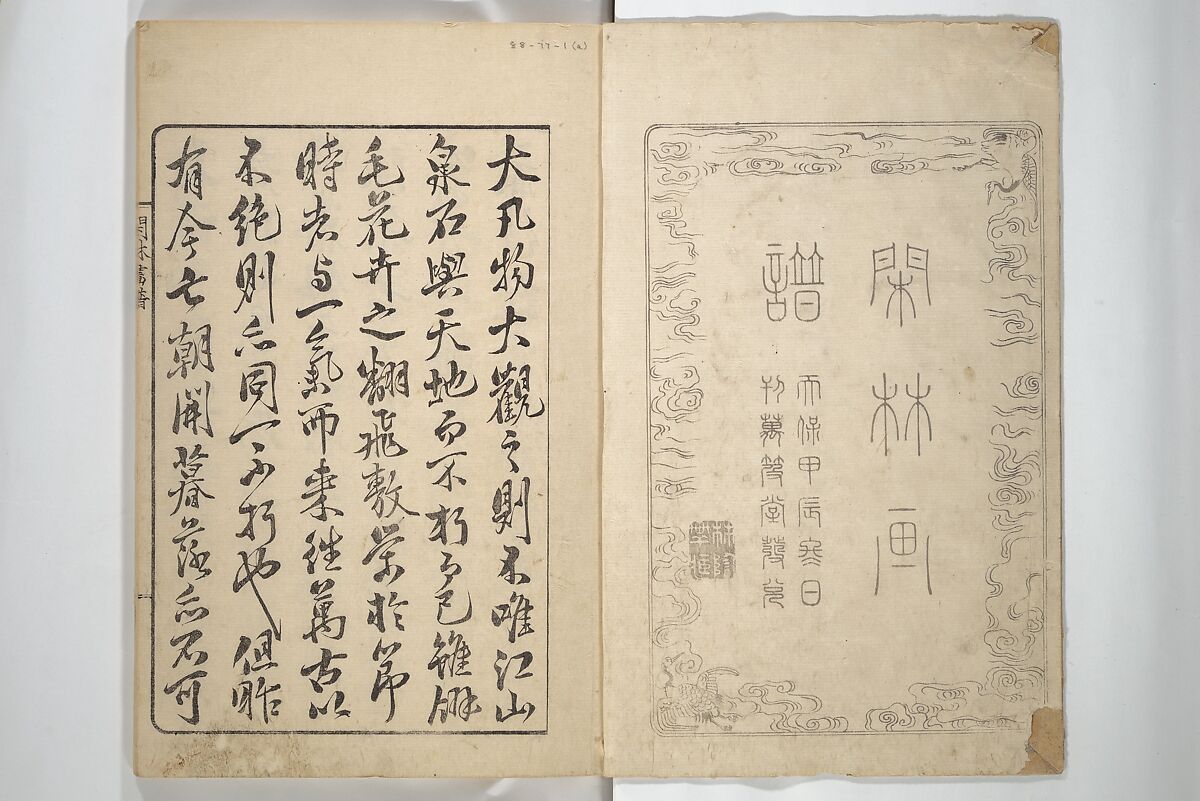 閑林画
譜
天保甲辰寒日
刊萬笈堂發兌
大凡物大觀之則不唯江山
泉石與天地而不朽而已雖餅
毛花卉之翻飛敷榮於節
時者与一氣而來往萬古以
不絶則亦同一不朽也但昨
有今亡朝開暮落亦不可
閑林畫譜
88-77-1(a)